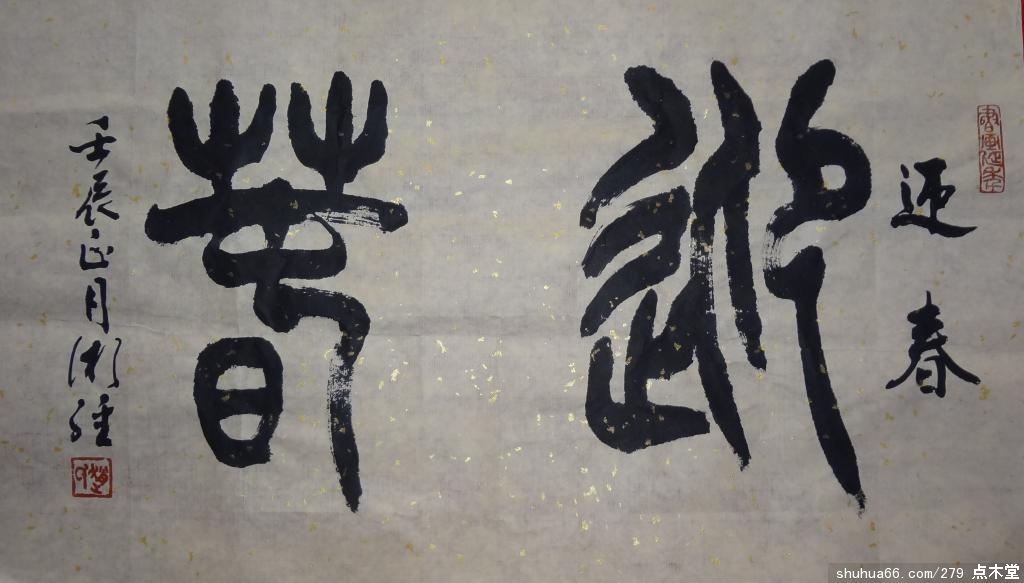 迎春
迎春
壬辰正月
shuhua66.com/279 点木堂